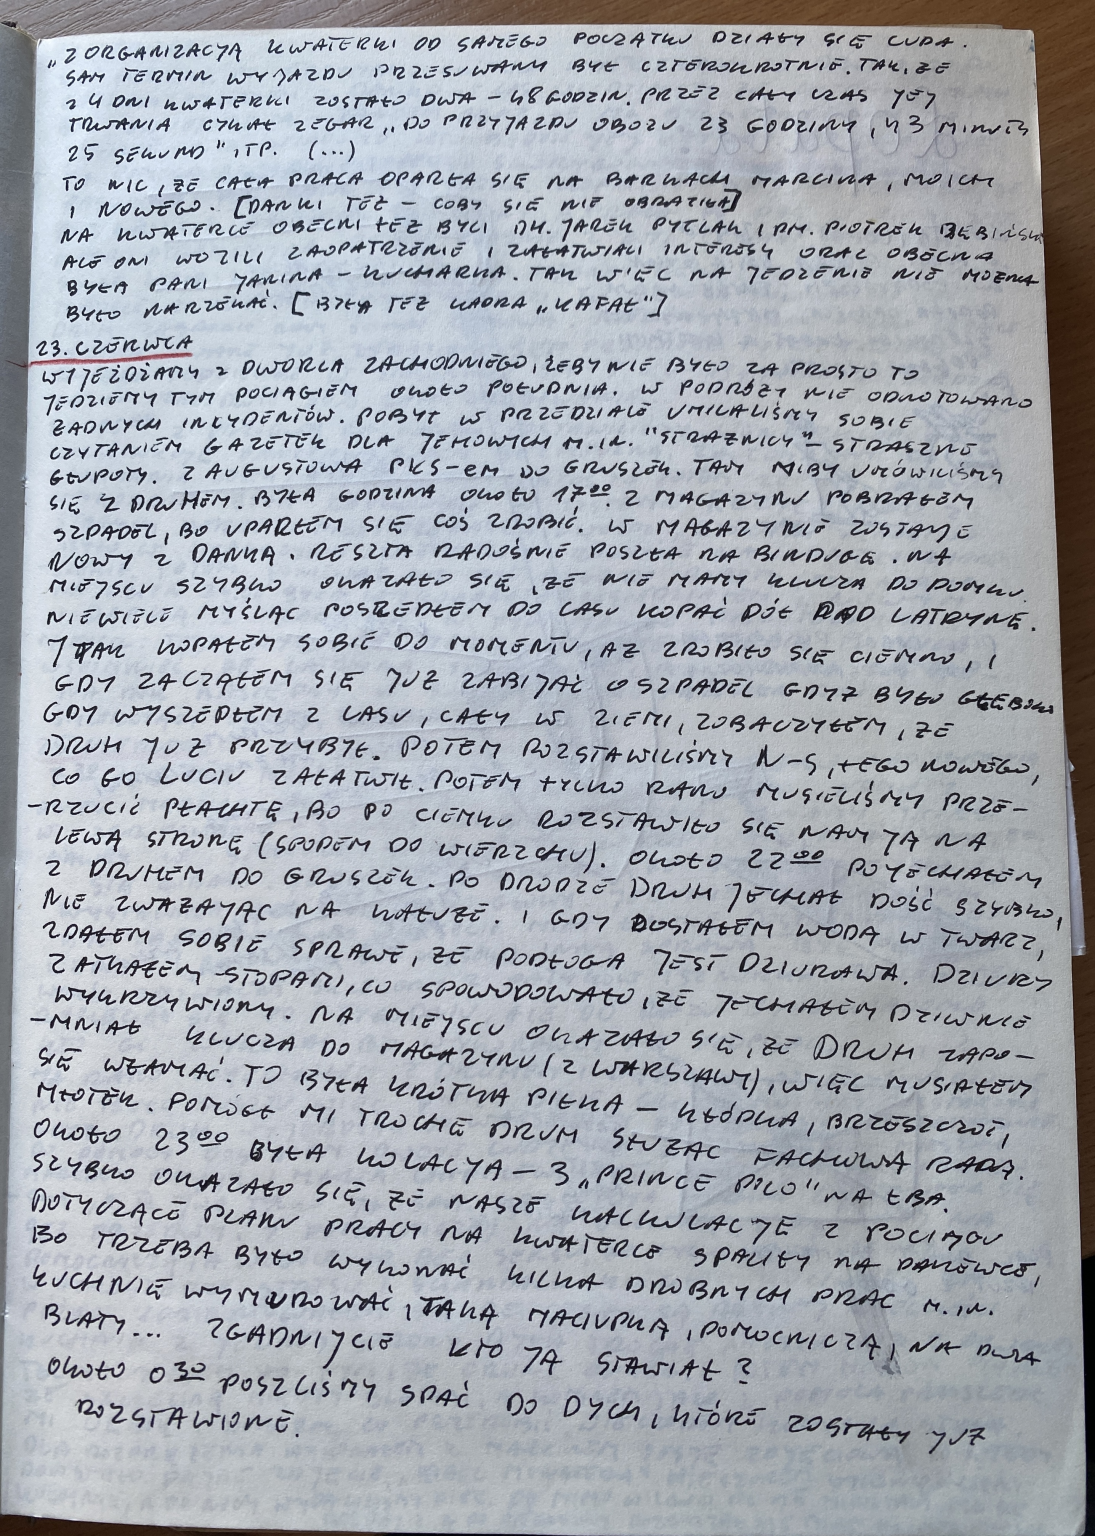 „Z ORGANIZACJĄ KWATERKI OD SAMEGO POCZĄTKU DZIAŁY SIĘ CUDA.
SAM TERMIN WYJAZDU PRZESUWANY BYŁ CZTEROKROTNIE. TAK, ŻE
Z 4 DNI KWATERKI ZOSTAŁO DWA – 48 GODZIN. PRZEZ CAŁY CZAS JEJ
TRWANIA CYKAŁ ZEGAR „DO PRZYJAZDU OBOZU 23 GODZINY, 43 MINUTY
25 SEKUND" ITP. (...)
TO NIC, ŻE CAŁA PRACA OPARŁA SIĘ NA BARKACH MARCINA, MOICH
I NOWEGO. [DANKI TEŻ – COBY SIĘ NIE OBRAZIŁA]
NA KWATERCE OBECNI TEŻ BYLI DH. JAREK PYTLAK I PM. PIOTREK
ALE ONI WOZILI ZAOPATRZENIE I ZAŁATWIALI INTERESY ORAZ OBECNA
BYŁA PANI JANINA – KUCHARKA. TAK WIĘC NA JEDZENIE NIE MOŻNA
BYŁO NARZEKAĆ. [BYŁA TEŻ KADRA „KAFAŁ"]
23. CZERWCA
WYJEŻDŻAMY Z DWORCA ZACHODNIEGO, ŻEBY NIE BYŁO ZA PROSTO TO
JEDZIEMY TYM POCIĄGIEM OKOŁO POŁUDNIA. W PODRÓŻY NIE ODNOTOWANO
ŻADNYCH INCYDENTÓW. POBYT W PRZEDZIALE UMILALIŚMY SOBIE
CZYTANIEM GAZETEK DLA JEHOWYCH M.IN. "STRAŻNICY" – STRASZNE
GŁUPOTY. Z AUGUSTOWA PKS-EM DO GRUSZEK. TAM NIBY UMÓWILIŚMY
SIĘ Z DRUHEM. BYŁA GODZINA OKOŁO 17⁰⁰. Z MAGAZYNU POBRAŁEM
SZPADEL, BO UPARŁEM SIĘ COŚ ZROBIĆ. W MAGAZYNIE ZOSTAJE
NOWY Z DANKĄ. RESZTA RADOŚNIE POSZŁA NA BINDUGĘ. NA
MIEJSCU SZYBKO OKAZAŁO SIĘ, ŻE NIE MAMY KLUCZA DO DOMKU.
NIEWIELE MYŚLĄC POSZEDŁEM DO LASU KOPAĆ DÓŁ POD LATRYNĘ.
I TAK KOPAŁEM SOBIE DO MOMENTU, AŻ ZROBIŁO SIĘ CIEMNO, I
GDY ZACZĄŁEM SIĘ JUŻ ZABIJAĆ O SZPADEL GDYŻ BYŁO GŁĘBOKO
GDY WYSZEDŁEM Z LASU, CAŁY W ZIEMI, ZOBACZYŁEM, ŻE
DRUH JUŻ PRZYBYŁ. POTEM ROZSTAWILIŚMY N-S, TEGO NOWEGO,
CO GO LUCIU ZAŁATWIŁ. POTEM TYLKO RANO MUSIELIŚMY PRZE-
-RZUCIĆ PŁACHTĘ, BO PO CIEMKU ROZSTAWIŁO SIĘ NAM JĄ NA
LEWĄ STRONĘ (SPODEM DO WIERZCHU). OKOŁO 22⁰⁰ POJECHAŁEM
Z DRUHEM DO GRUSZEK. PO DRODZE DRUH JECHAŁ DOŚĆ SZYBKO,
NIE ZWAŻAJĄC NA KAŁUŻE. I GDY DOSTAŁEM WODĄ W TWARZ,
ZDAŁEM SOBIE SPRAWĘ, ŻE PODŁOGA JEST DZIURAWA. DZIURY
ZATKAŁEM STOPAMI, CO SPOWODOWAŁO, ŻE JECHAŁEM DZIWNIE
WYKRZYWIONY. NA MIEJSCU OKAZAŁO SIĘ, ŻE DRUH ZAPO-
-MNIAŁ KLUCZA DO MAGAZYNU (Z WARSZAWY), WIĘC MUSIAŁEM
SIĘ WŁAMAĆ. TO BYŁA KRÓTKA PIŁKA – KŁÓDKA, BRZESZCZOT,
MŁOTEK. POMÓGŁ MI TROCHĘ DRUH SŁUŻĄC FACHOWĄ RADĄ.
OKOŁO 23⁰⁰ BYŁA KOLACJA – 3 „PRINCE POLO" NA ŁBA.
SZYBKO OKAZAŁO SIĘ, ŻE NASZE KALKULACJE Z POCIĄGU
DOTYCZĄCE PLANU PRACY NA KWATERCE SPALIŁY NA PANEWCE,
BO TRZEBA BYŁO WYKONAĆ KILKA DROBNYCH PRAC M.IN.
KUCHNIĘ WYMUROWAĆ, TAKĄ MACIUPKĄ, POMOCNICZĄ, NA DWA
BLATY... ZGADNIJCIE KTO JĄ STAWIAŁ?
OKOŁO 0³⁰ POSZLIŚMY SPAĆ DO DYCH, KTÓRE ZOSTAŁY JUŻ
ROZSTAWIONE.